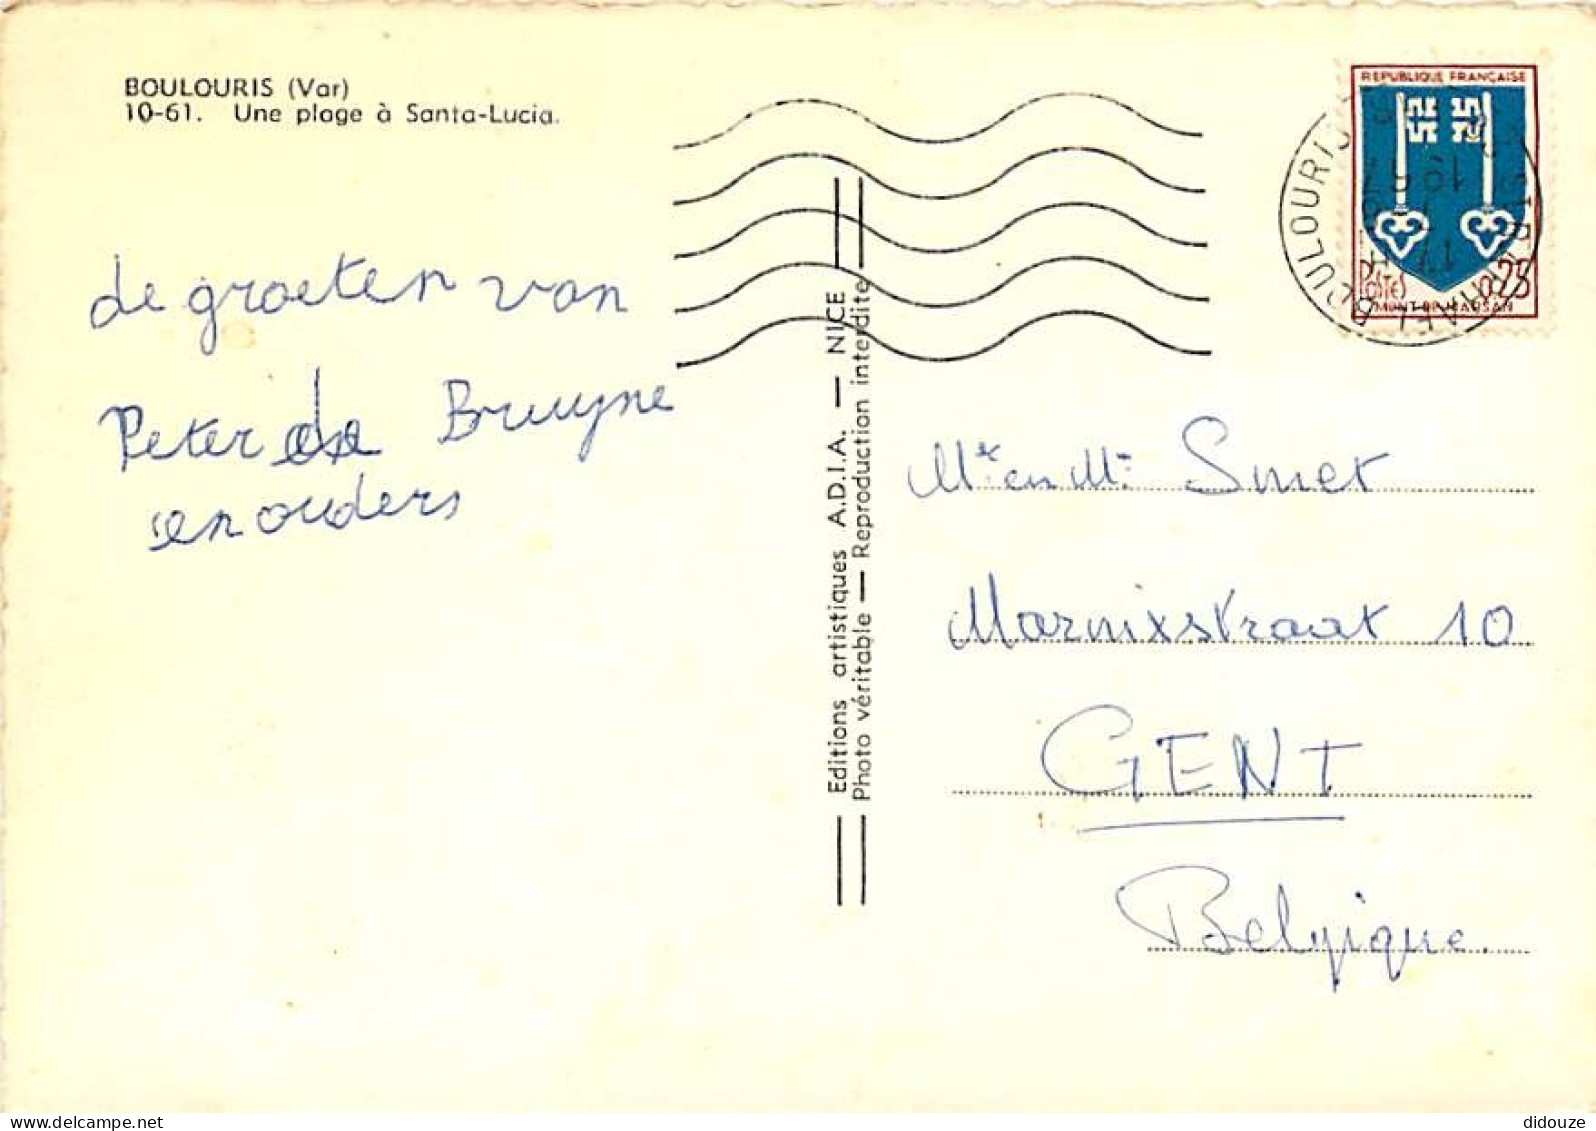 BOULOURIS (Var)
10-61. Une plage à Santa-Lucia.
de groeten van
Peter de Bruyne
en ouders
Editions artistiques A.D.I.A. — NICE
Photo véritable — Reproduction interdite
REPUBLIQUE FRANÇAISE
POSTES 0,25
MONT-DE-MARSAN
BOULOURIS
Mr en Mr Smet
Marnixstraat 10
GENT
Belgique.
delcampe.net
didouze